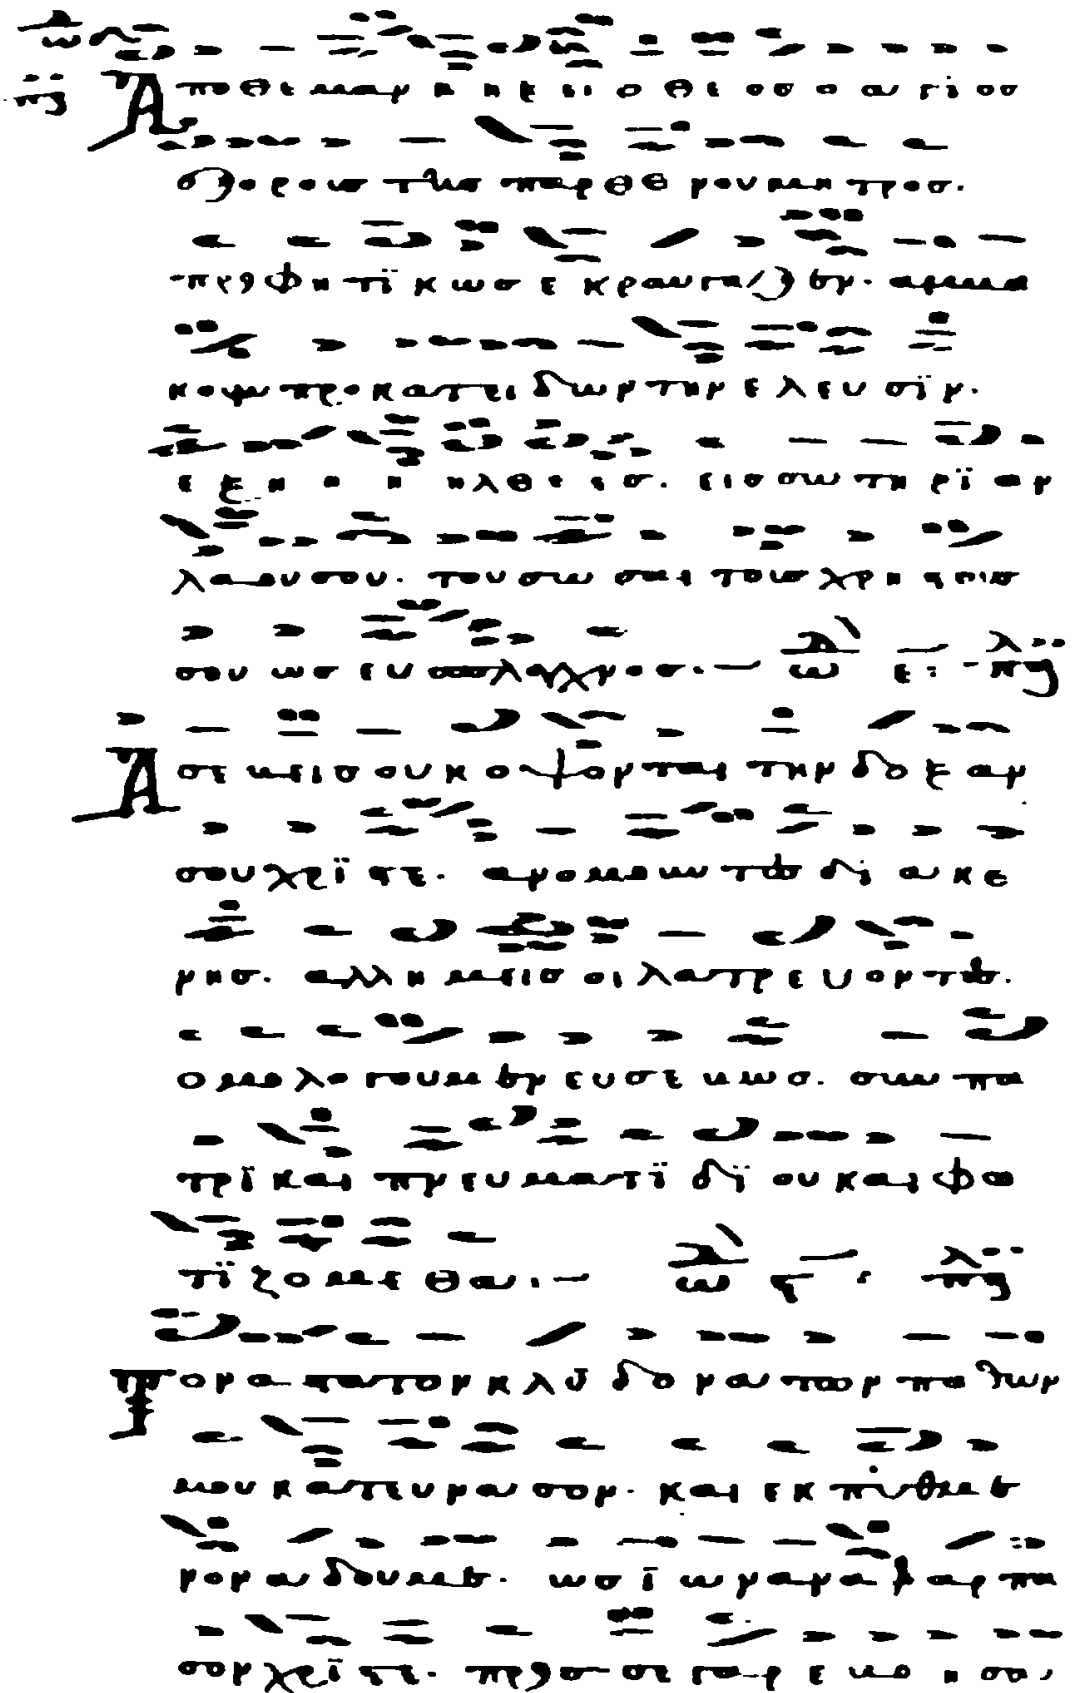 Αποθεμαν η η ξει ι ο θε οσ ο α γϊ οσ
ο ρουσ τησ παρθε νου μη τροσ.
προφητϊκωσ εκραυγαζεν. 
προ κατειδων την ελευσϊν.
εξη η η ηλθεσ. εισ σωτηρϊαν
λαου σου. του σωσαι τουσ χρηστουσ
σου ωσ ευσπλαγχνοσ. ωδ ε: πλ β
Ασεβεισ ουκ οψονται την δοξαν
σου χρϊστε. δϊακε
νησ. αλλ ημεισ οι λατρευοντεσ.
ομολογουμεν ευσεβωσ. συν πα
τρϊ και πνευματϊ δϊ ου και φω
τϊζομεθα. ωδ ς πλ β
Τον απατον κλυδονα των παθων
μου κατευνασον. και εκ πυθμε
νον αδου με. ωσ ϊωναν αναρπα
σον χρϊστε. προσ σε γαρ εβο η σα